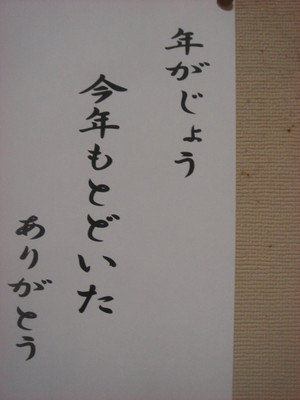 年がじょう
今年もとどいた
ありがとう